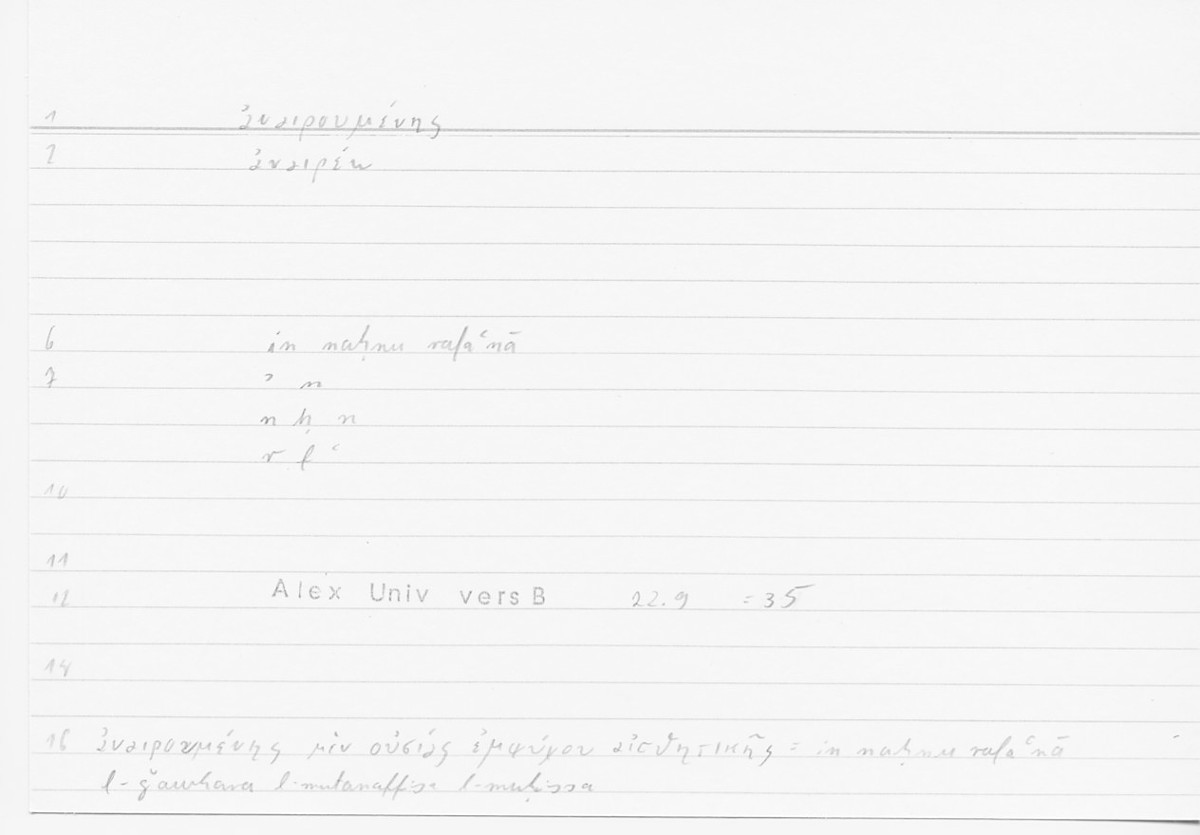 1 ἀναιρουμένης
2 ἀναιρέω
6 in naḥnu rafaʿnā
7 ʾ n
n ḥ n
r f ʿ
10
11
12 Alex Univ vers B 22.9 = 35
14
16 ἀναιρουμένης μὲν οὐσίας ἐμψύχου αἰσθητικῆς = in naḥnu rafaʿnā
l-ǧawhara l-mutanaffisa l-muḥissa